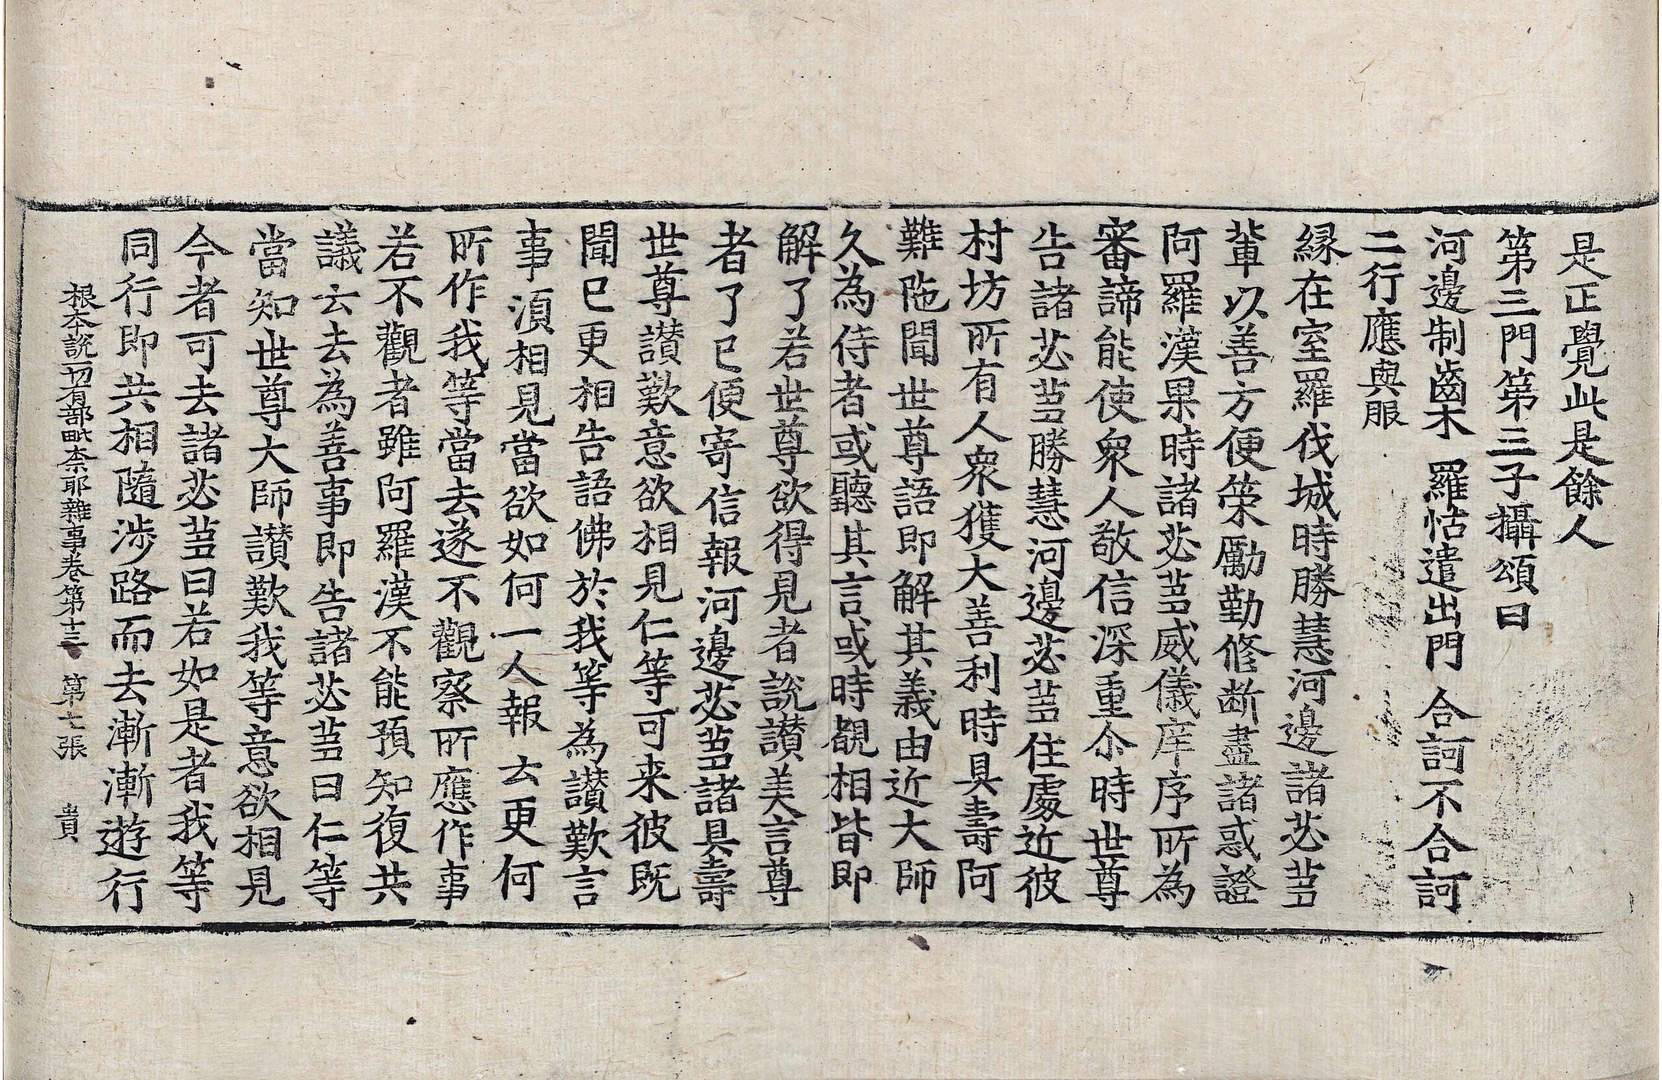 是正覺此是餘人
第三門第三子攝頌曰
河邊制齒木　羅怙遣出門　合訶不合訶
二行應與服
緣在室羅伐城時勝慧河邊諸苾芻
輩以善方便策勵勤修断盡諸惑證
阿羅漢果時諸苾芻威儀庠序所為
審諦能使衆人敬信深重尒時世尊
告諸苾芻勝慧河邊苾芻住處近彼
村坊所有人衆獲大善利時具壽阿
難陁聞世尊語即解其義由近大師
久為侍者或聽其言或時覩相皆即
解了若世尊欲得見者說讃美言尊
者了已便寄信報河邊苾芻諸具壽
世尊讃歎意欲相見仁等可来彼既
聞已更相告語佛於我等為讃歎言
事湏相見當欲如何一人報云更何
所作我等當去遂不觀察所應作事
若不觀者雖阿羅漢不能預知復共
議云去為善事即告諸苾芻曰仁等
當知世尊大師讃歎我等意欲相見
今者可去諸苾芻曰若如是者我等
同行即共相隨涉路而去漸漸遊行
根本說一切有部毗奈耶雜事卷第十三　第七張　貴